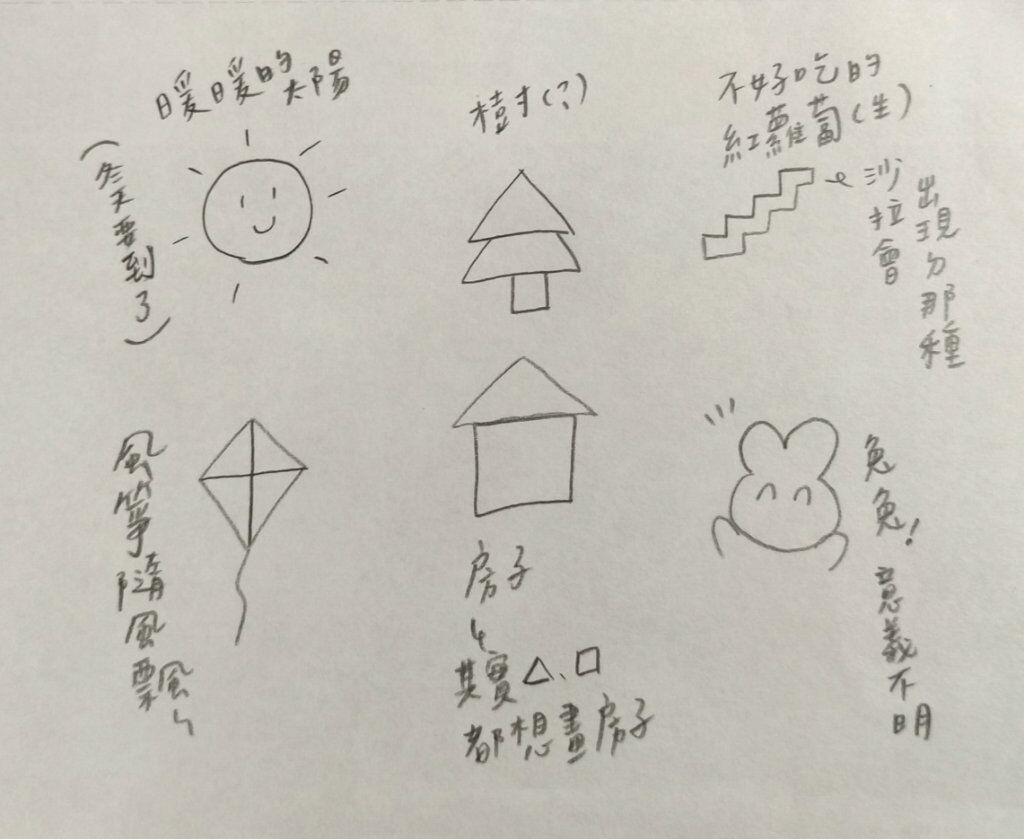 暖暖的太陽
(冬天要到了)
樹(?)
不好吃的
紅蘿蔔(生)
沙拉會
出現ㄉ那種
風箏隨風飄ㄣ
房子
ㄣ
其實△、□
都想畫房子
兔兔!意義不明